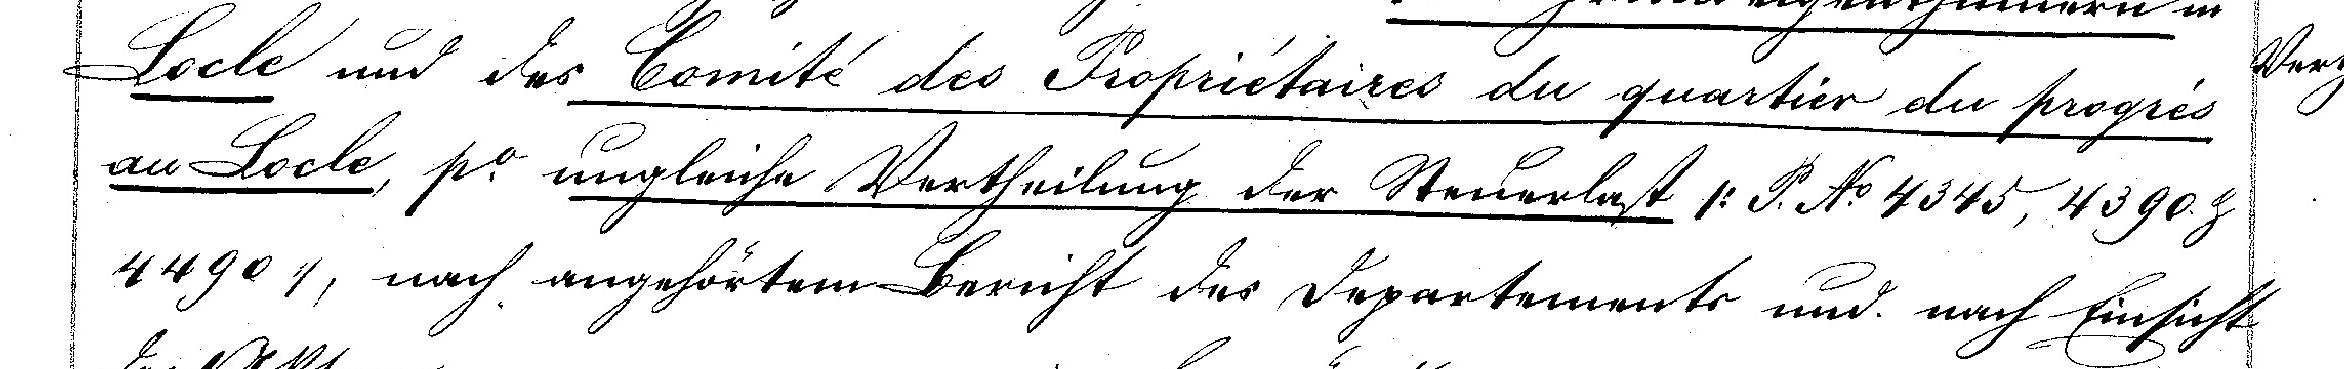 Locle und des Comité des Propriétaires du quartier du progrés
au Locle, po ungleiche Vertheilung der Steuerlast /: P. No 4345, 4390 &
4490 :/, nach angehörtem Bericht des Departements und nach Einsicht